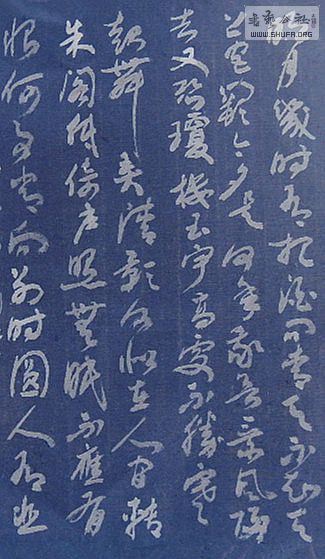 書藝公社
WWW.SHUFA.ORG
明月幾時有把酒問青天不知天
上宮闕今夕是何年我欲乘風歸
去又恐瓊樓玉宇高處不勝寒
起舞弄清影何似在人間轉
朱閣低綺户照無眠不應有
恨何事長向別時圓人有悲